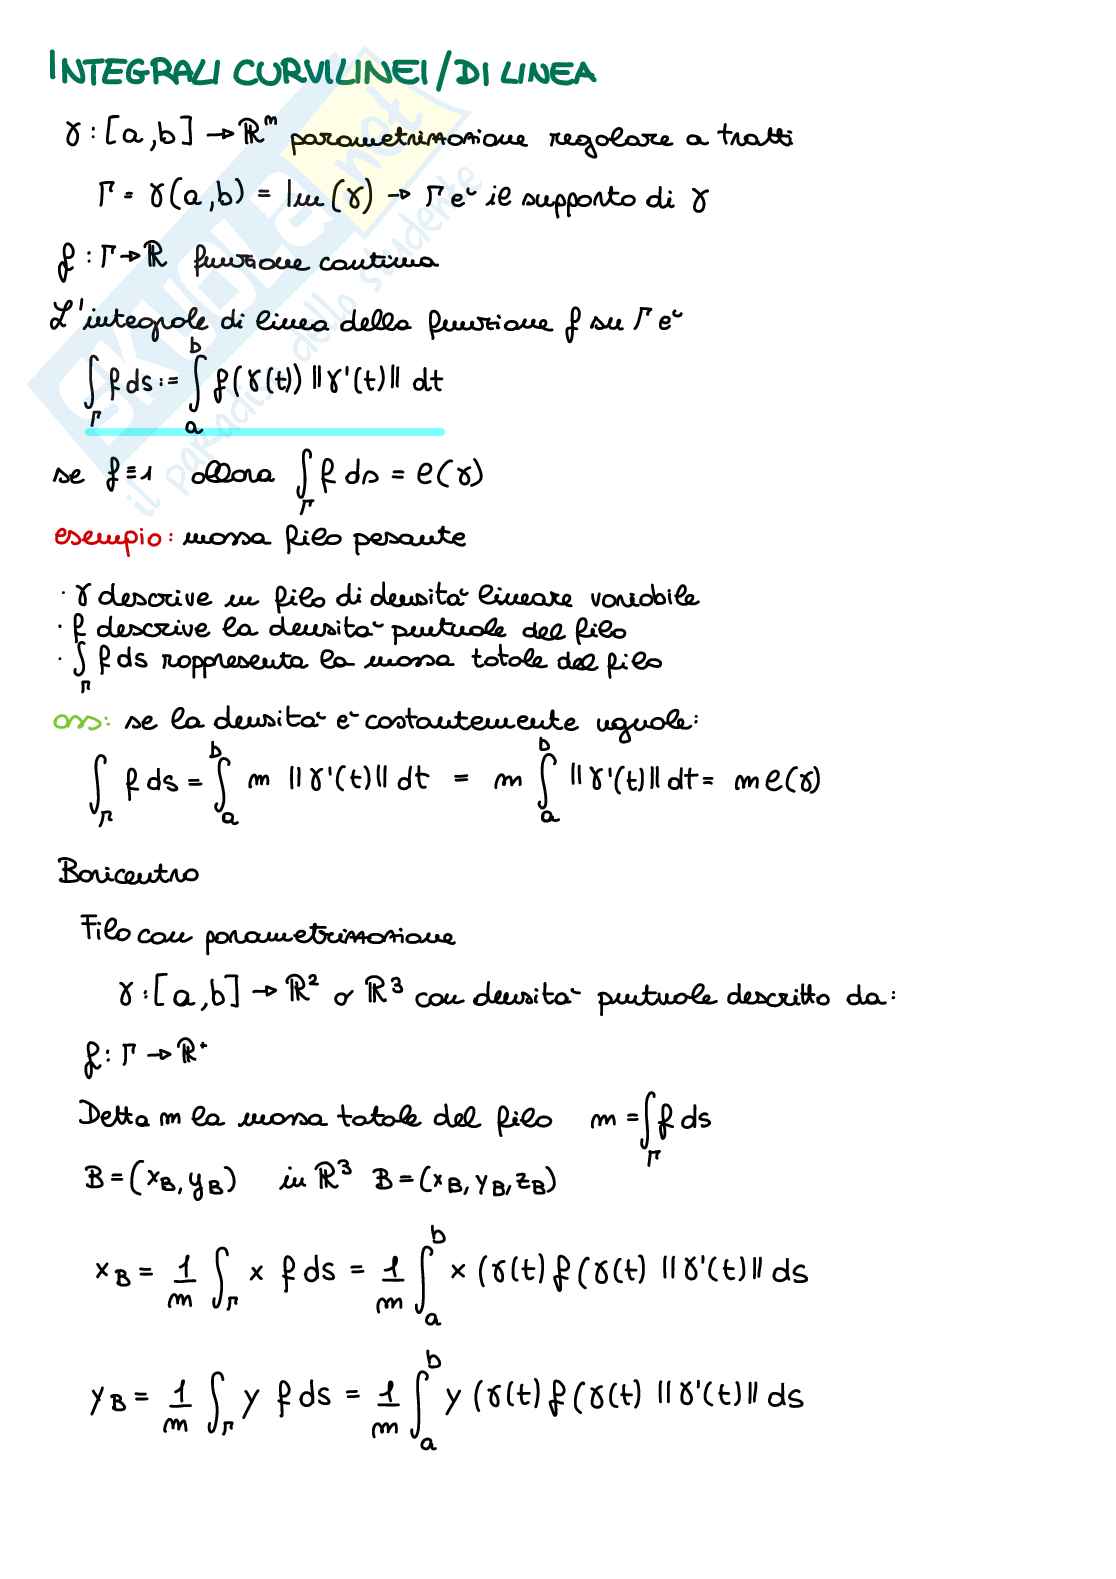 INTEGRALI CURVILINEI/DI LINEA
γ : [a,b] → ℝᵐ parametrizzazione regolare a tratti
Γ = γ(a,b) = Im(γ) → Γ e˘ il supporto di γ
f : Γ → ℝ funzione continua
L'integrale di linea della funzione f su Γ e˘
∫_Γ f ds := ∫_a^b f(γ(t)) ||γ'(t)|| dt
se f ≡ 1 allora ∫_Γ f ds = ℓ(γ)
esempio: massa filo pesante
· γ descrive un filo di densita˘ lineare variabile
· f descrive la densita˘ puntuale del filo
· ∫_Γ f ds rappresenta la massa totale del filo
oss: se la densita˘ e˘ costantemente uguale:
∫_Γ f ds = ∫_a^b m ||γ'(t)|| dt = m ∫_a^b ||γ'(t)|| dt = m ℓ(γ)
Baricentro
Filo con parametrizzazione
γ : [a,b] → ℝ² o ℝ³ con densita˘ puntuale descritto da:
f : Γ → ℝ⁺
Detta m la massa totale del filo m = ∫_Γ f ds
B = (x_B, y_B) in ℝ³ B = (x_B, y_B, z_B)
x_B = 1/m ∫_Γ x f ds = 1/m ∫_a^b x (γ(t) f (γ(t) ||γ'(t)|| ds
y_B = 1/m ∫_Γ y f ds = 1/m ∫_a^b y (γ(t) f (γ(t) ||γ'(t)|| ds
SKUOLA.not
il paradiso dello studente